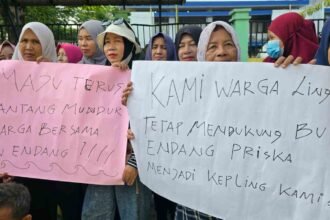 MAJU TERUS
PANTANG MUNDUR
WARGA BERSAMA
ENDANG !!!!
KAMI WARGA Ling
TETAP MENDUKUNG BU
ENDANG PRISKA
MENJADI KEPLING KAMI